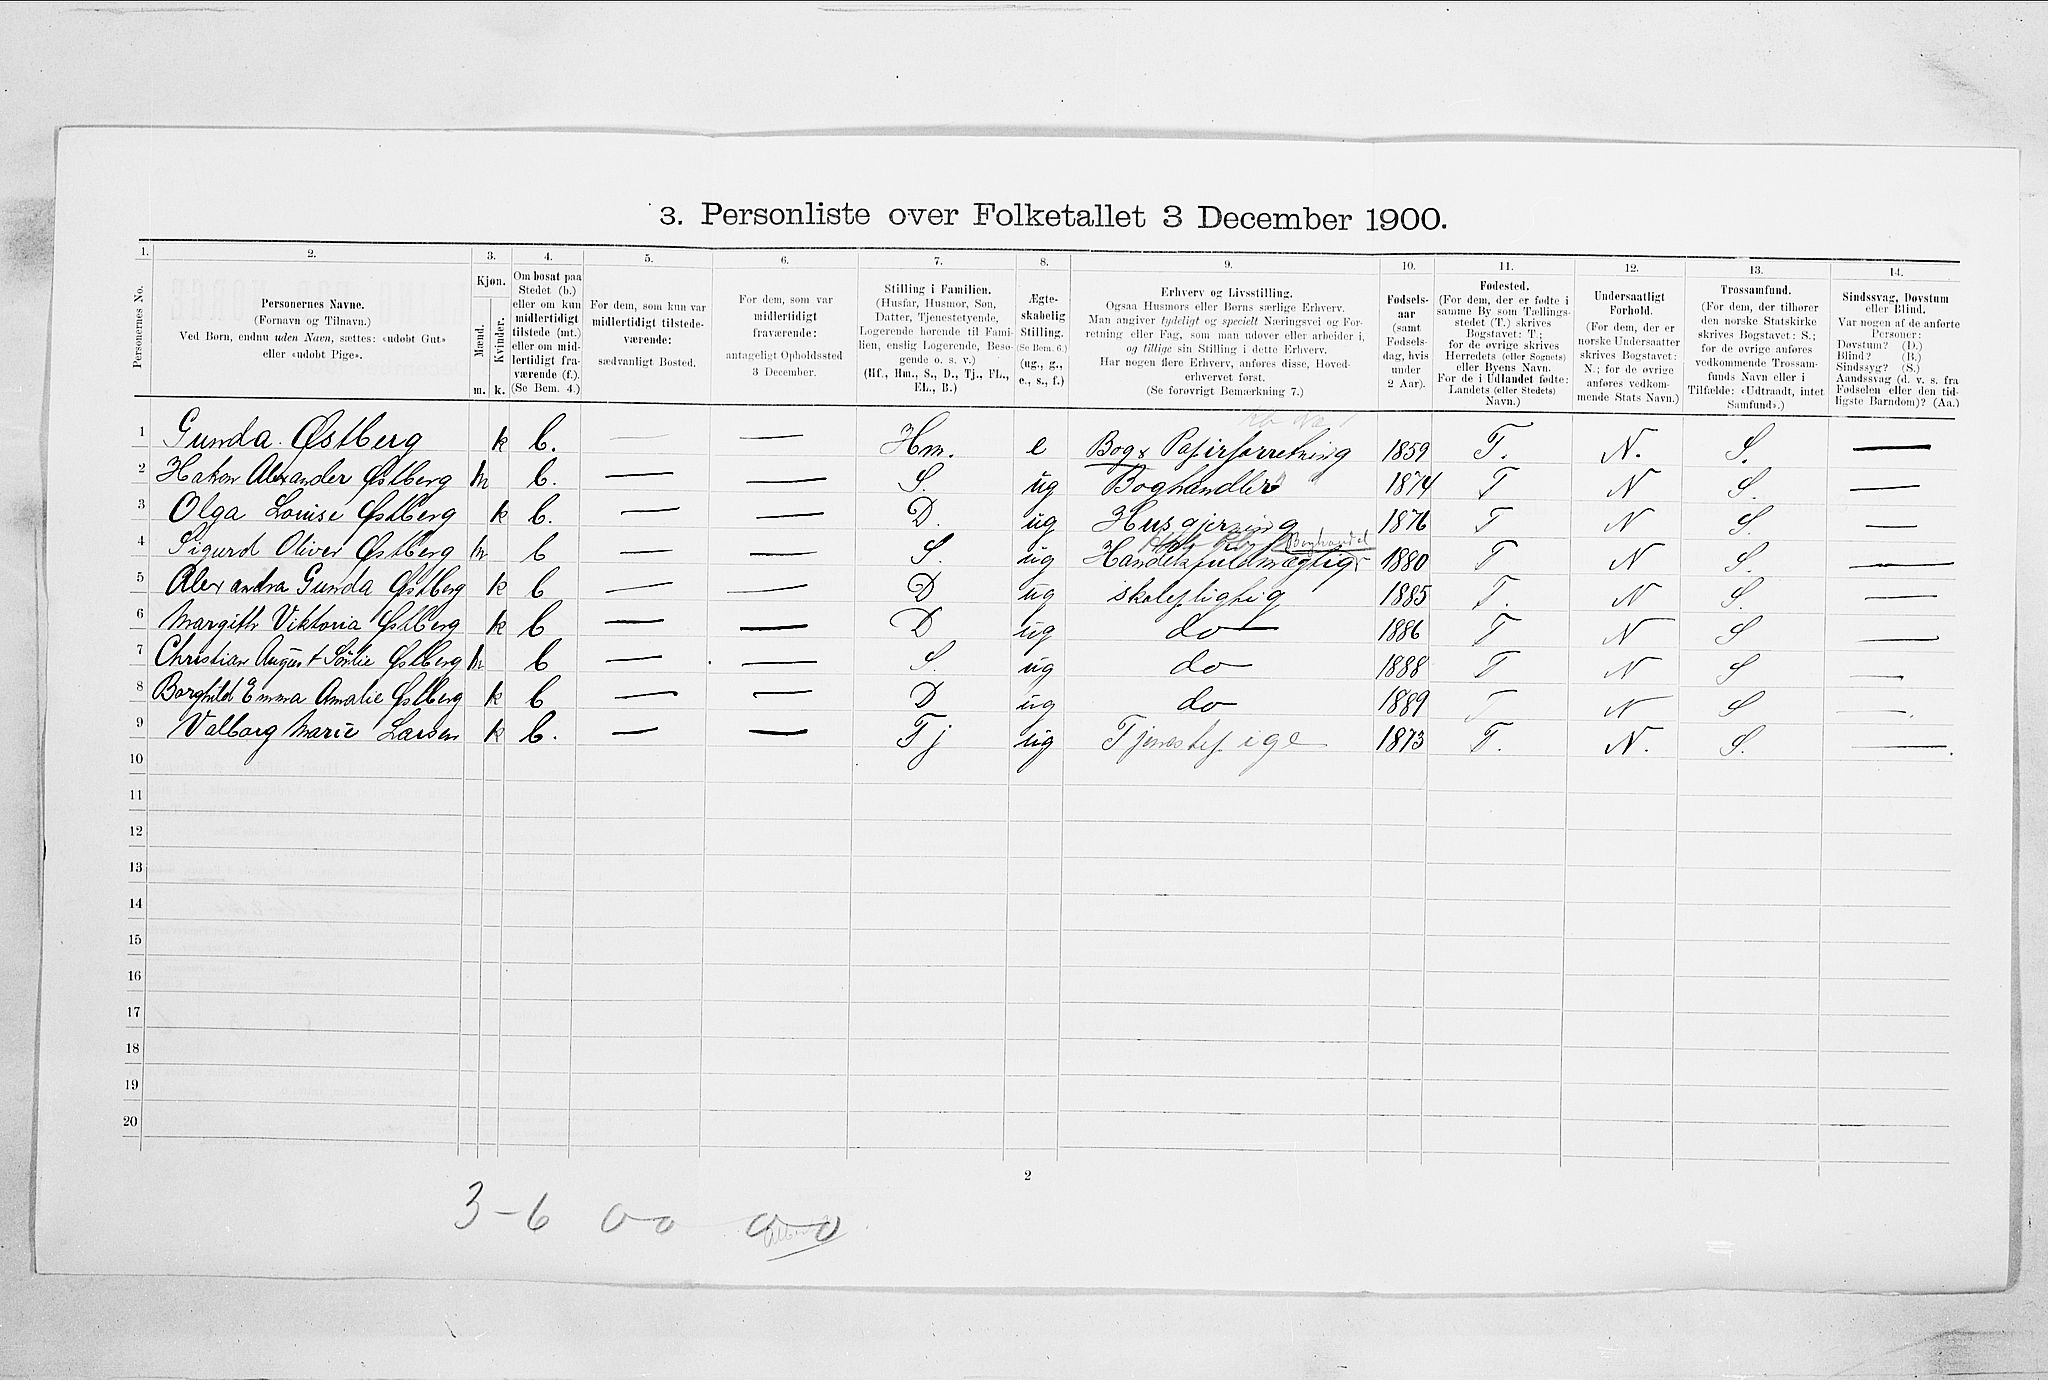 3. Personliste over Folketallet 3 December 1900.
1. 2. 3. 4. 5. 6. 7. 8. 9. 10. 11. 12. 13. 14.
Personernes No.
Personernes Navne.
(Fornavn og Tilnavn.)
Ved Børn, endnu uden Navn, sættes: «udøbt Gut»
eller «udøbt Pige».
Kjøn.
Mænd.
Kvinder.
m. k.
Om bosat paa
Stedet (b.)
eller om kun
midlertidigt
tilstede (mt.)
eller om mid-
lertidigt fra-
værende (f.).
(Se Bem. 4.)
For dem, som kun var
midlertidigt tilstede-
værende:
sædvanligt Bosted.
For dem, som var
midlertidigt
fraværende:
antageligt Opholdssted
3 December.
Stilling i Familien.
(Husfar, Husmor, Søn,
Datter, Tjenestetyende,
Logerende hørende til Fami-
lien, enslig Logerende, Besø-
gende o. s. v.)
(Hf., Hm., S., D., Tj., FL.,
EL., B.)
Ægte-
skabelig
Stilling.
(Se Bem. 6.)
(ug., g.,
e., s., f.)
Erhverv og Livsstilling.
Ogsaa Husmors eller Børns særlige Erhverv.
Man angiver tydeligt og specielt Næringsvei og For-
retning eller Fag, som man udøver eller arbeider i,
og tillige sin Stilling i dette Erhverv.
Har nogen flere Erhverv, anføres disse, Hoved-
erhvervet først.
(Se forøvrigt Bemærkning 7.)
Fødsels-
aar
(samt
Fødsels-
dag, hvis
under
2 Aar).
Fødested.
(For dem, der er fødte i
samme By som Tællings-
stedet (T.) skrives
Bogstavet: T.;
for de øvrige skrives
Herredets (eller Sognets)
eller Byens Navn.
For de i Udlandet fødte:
Landets (eller Stedets)
Navn.)
Undersaatligt
Forhold.
(For dem, der er
norske Undersaatter
skrives Bogstavet:
N.; for de øvrige
anføres vedkom-
mende Stats Navn.)
Trossamfund.
(For dem, der tilhører
den norske Statskirke
skrives Bogstavet: S.;
for de øvrige anføres
vedkommende Trossam-
funds Navn eller i
Tilfælde: «Udtraadt, intet
Samfund».)
Sindssvag, Døvstum
eller Blind.
Var nogen af de anførte
Personer:
Døvstum? (D.)
Blind? (B.)
Sindssyg? (S.)
Aandssvag (d. v. s. fra
Fødselen eller den tid-
ligste Barndom)? (Aa.)
1 Gunda Østberg k b. — — Hm. e Bog & Papirforretning 1859 T. N. S. —
2 Hakon Alexander Østberg m b. — — S. ug Boghandler 1874 T N S. —
3 Olga Louise Østberg k b. — — D. ug Husgjerning 1876 T N S. —
Boghandel
4 Sigurd Oliver Østberg m b — — S. ug Handelsfuldmægtig 1880 T N S. —
5 Alexandra Gunda Østberg k b — — D ug skolepligtig 1885 T. N S. —
6 Margith Viktoria Østberg k b — — D ug do — 1886 T N S —
7 Christian August Sörlie Østberg m b — — S. ug do — 1888 T N S —
8 Borghild Emma Amalie Østberg k b — — D ug do — 1889 T N S —
9 Valborg Marie Larsen k b. — — Tj ug Tjenestepige 1873 T. N. S. —
10
11
12
13
14
15
16
17
18
19
20
2
3-6 0-0 0-0